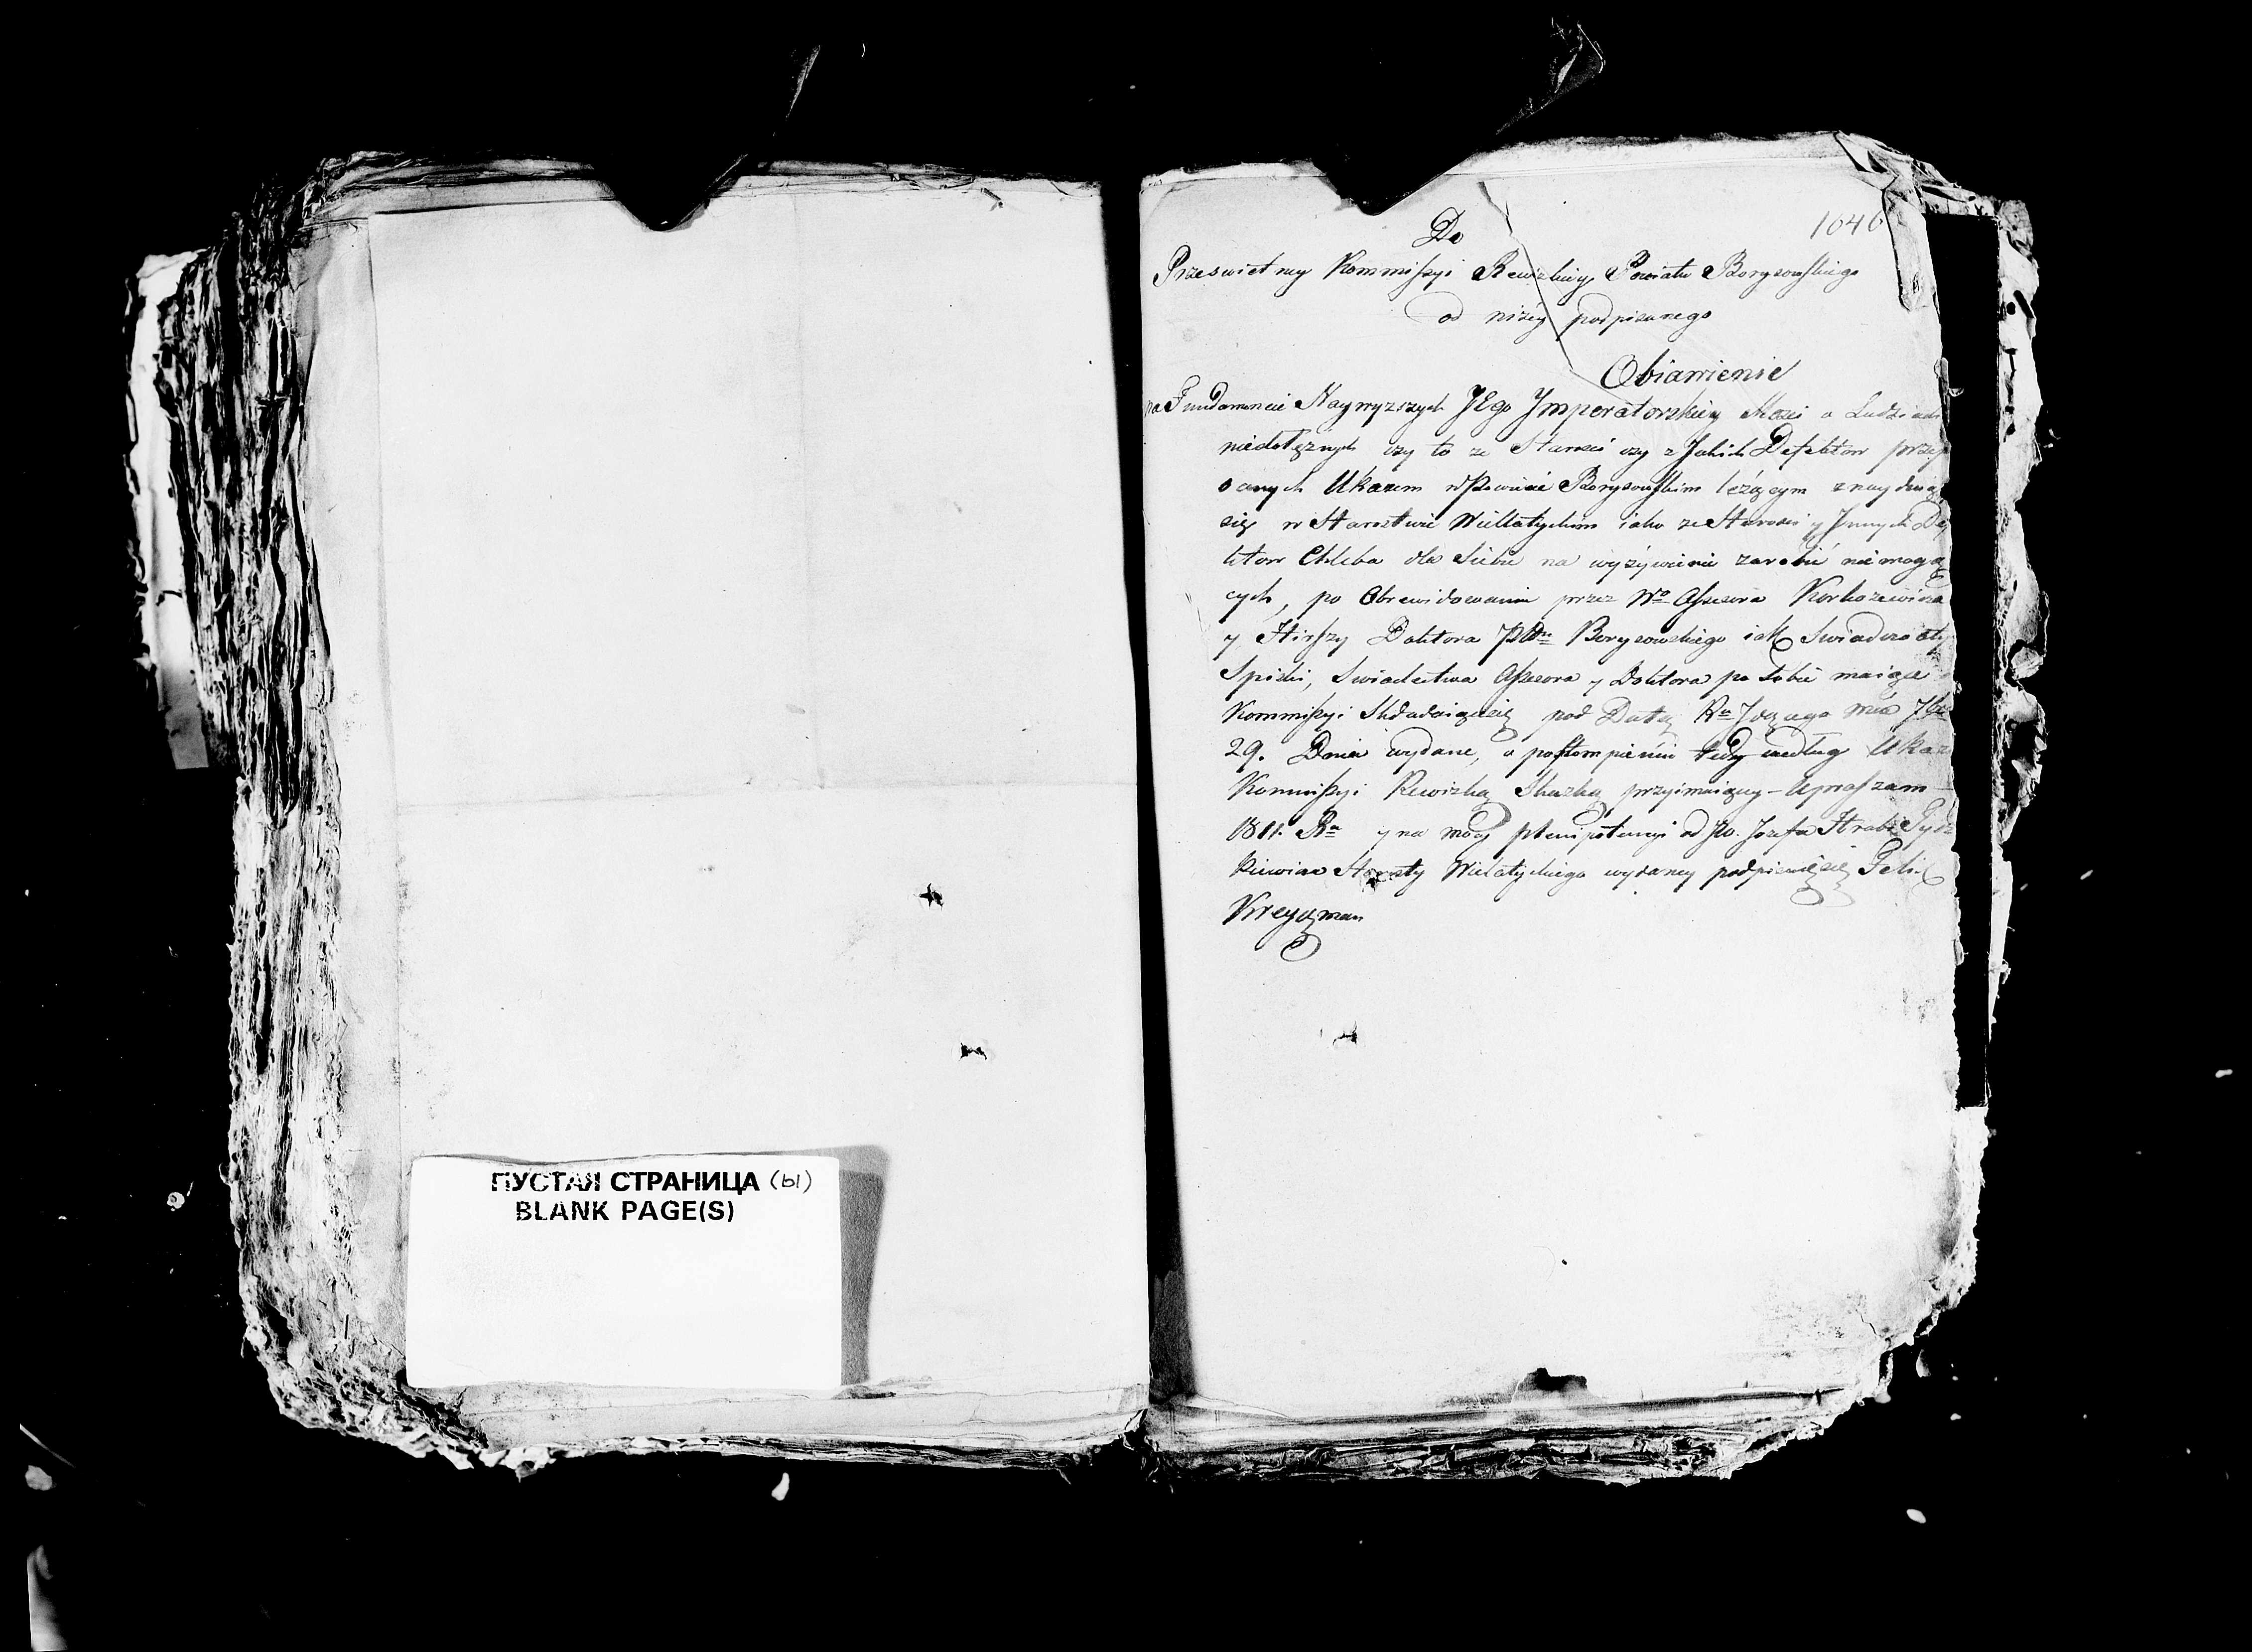 ПУСТАЯ СТРАНИЦА (ы)
BLANK PAGE(S)
1046
Do
Przeswietney Kommissyi Rewizkiey Powiatu Borysowskiego
od niżey podpisanego
Obiawienie
na Fundamencie Naywyzszych JEgo Imperatorskiey Mosci o Ludziach
niedołężnych czy to ze Starosci czy z Jakich Defektow przep
sanych Ukazem w Powiecie Borysowskim leżącym znayduią
się w Starostwie Wiellatyckim iako ze Starosci y Innych Def
ktow Chleba dla Siebie na wyżywienie zarobić nie mogą
cych, po Obrewidowaniu przez Wo Assesora Korkozewicza
y Hirszy Doktora Borysowskiego iak Swiadczą
Spiski, Swiadectwa Assesora y Doktora po sobie maiące
Kommissyi Składaiąc się pod Datą Ru Idącego
29. Dnia wydane, o postompienie tedy według Ukazu
Kommissyi Rewizką Skazką przyimaiącey - Upraszam -
1811. Ra y na mocy plenipotencyi od Jw. Jozefa Hrabi Tysz
kiewicza Starosty Wielatyckiego wydaney podpisuię się Felix